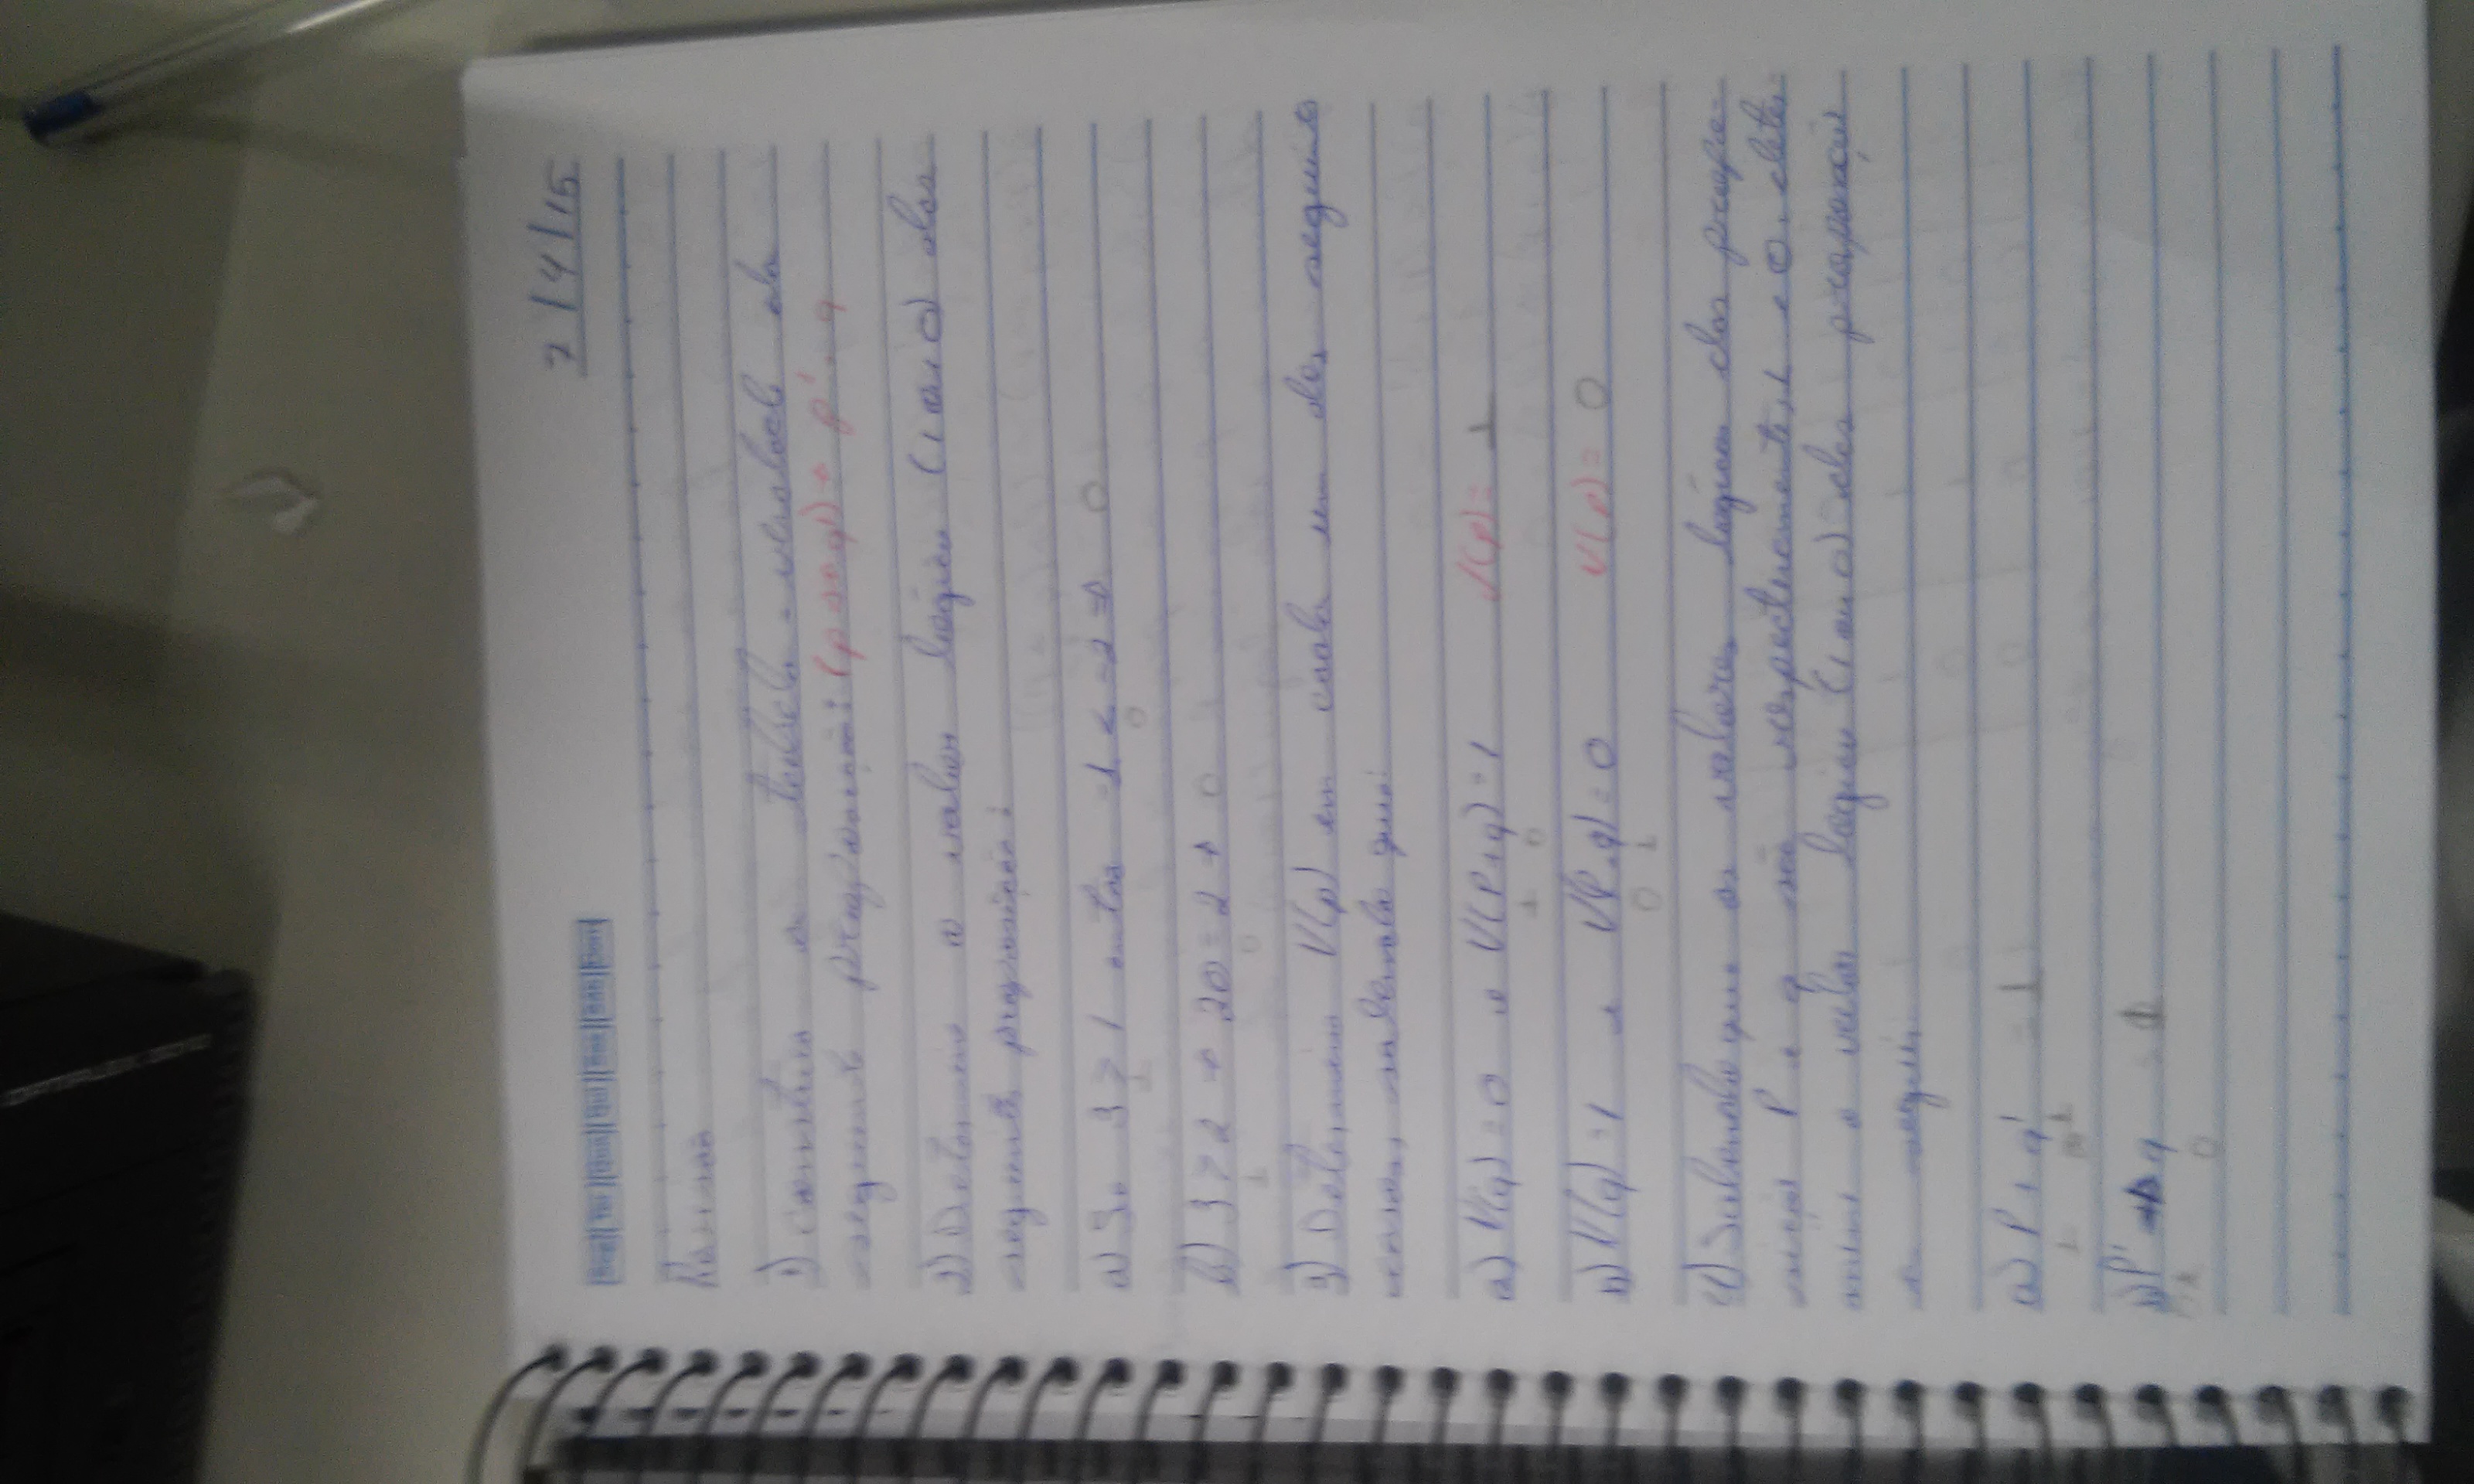 7/4/15
Revisão
1) construa a tabela-verdade da
seguinte proposição: p' . q
2) Determine o valor lógico (1 ou 0) das
seguintes proposições:
a) Se 3 > 1 então
1 0
b) 3 > 2 → 2º = 2 → 0
1 0
3) Determine V(p) em cada um dos seguintes
casos, sabendo que:
a) V(q) = 0 e V(P+q) = 1 V(p) = 1
1 0
b) V(q) = 1 e V(P.q) = 0 V(p) = 0
0 1
4) Sabendo que os valores lógicos das propo-
sições P e q são respectivamente, 1 e 0, deter-
mine o valor lógico (1 ou 0) das proposições
a seguir:
a) P + q' = 1
1
b) P' → q = 1
0